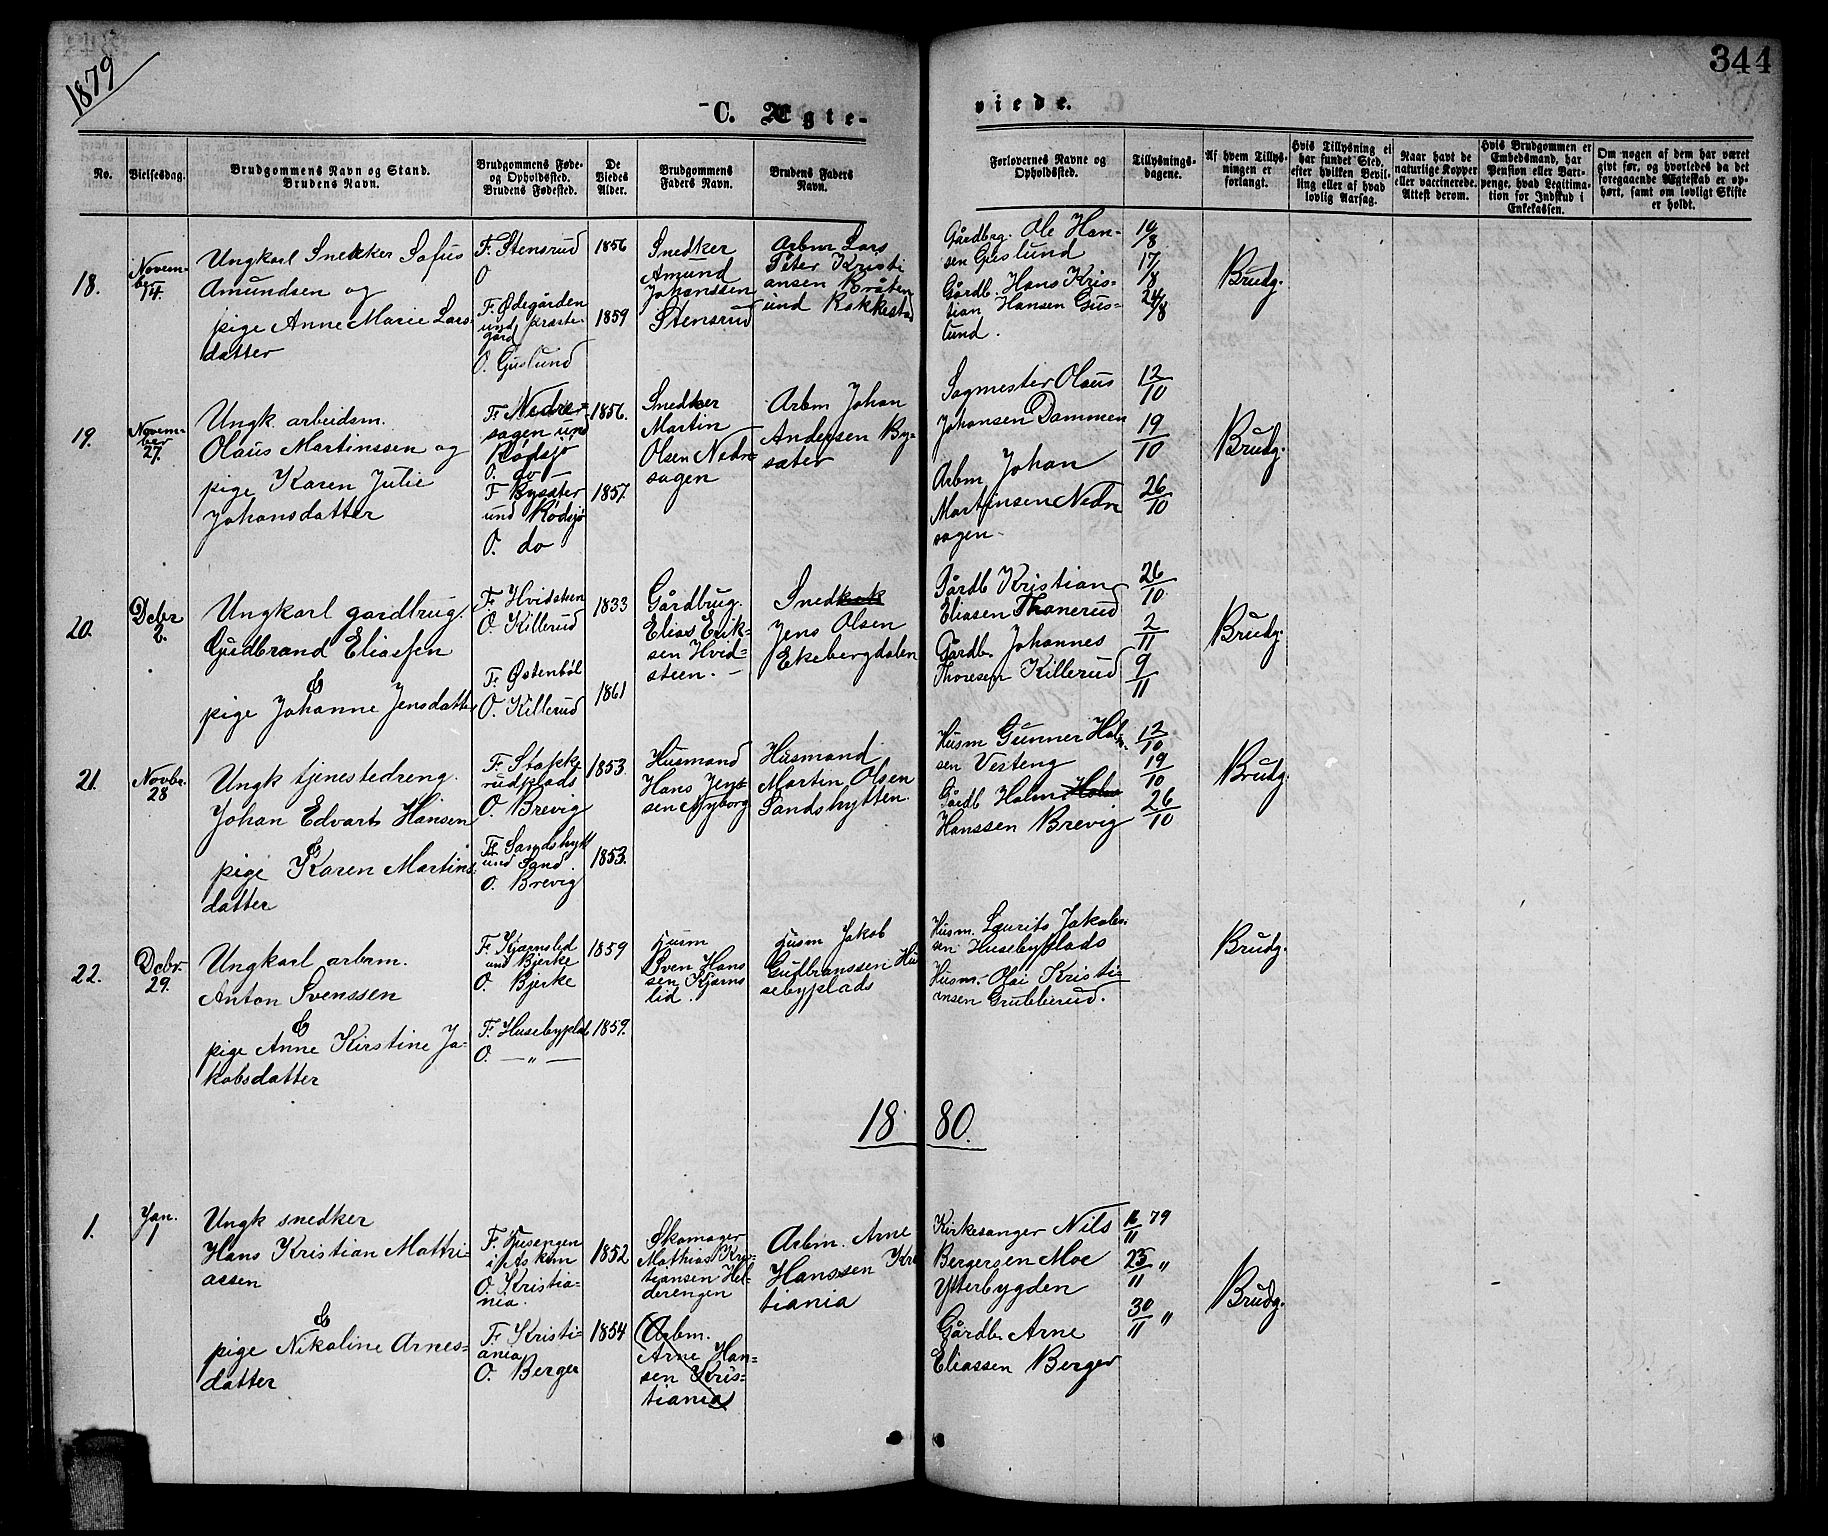 1879
344
C. Ægte-
viede.
No.
Vielsesdag.
Brudgommens Navn og Stand.
Brudens Navn.
Brudgommens Føde-
og Opholdssted.
Brudens Fødested.
De
Viedes
Alder.
Brudgommens
Faders Navn.
Brudens Faders
Navn.
Forlovernes Navne og
Opholdssted.
Tillysnings-
dagene.
Af hvem Tillys-
ningen er
forlangt.
Hvis Tillysning ei
har fundet Sted,
efter hvilken Bevil-
ling eller af hvad
lovlig Aarsag.
Naar havt de
naturlige Kopper
eller vaccinerede.
Attest derom.
Hvis Brudgommen er
Embedsmand, har
Pension eller Vart-
penge, hvad Legitima-
tion for Indskud i
Enkekassen.
Om nogen af dem har været
givt før, og hvorledes da det
foregaaende Ægteskab er op-
hørt, samt om lovligt Skifte
er holdt.
18.
Novem-
ber
14.
Ungkarl Snekker Sofus
Amundsen og
pige Anne Marie Lars-
datter
F. Stensrud
O
F. Ødegården
und præste-
gård
O. Guslund
1856
1859
Snedker
Amund
Johanssen
Stensrud
Arbm Lars
Peter Kristi
ansen Bråten
und Rakkestad
Gårdbrg. Ole Han-
sen Guslund
Gårdb. Hans Kris-
tian Hansen Gus-
lund.
10/8
17/8
24/8
Brudg.
19.
Novem-
ber
27.
Ungk. arbeidsm.
Olaus Martinssen og
pige Karen Julie
Johansdatter
F. Nedre-
sagen und
Rødsjø
O. do -
F Bysæter
und Rødsjø
O. do
1856.
1857.
Snedker
Martin
Olsen Nedre
sagen
Arbm Johan
Andersen By-
sæter
Sagmester Olaus
Johansen Dammen
Arbm Johan
Martinsen Nedre
sagen.
12/10
19/10
26/10
Brudg.
20.
Dcbr
2.
Ungkarl gardbrug.
Gudbrand Eliassen
&
pige Johanne Jensdatter
F. Hvidsten
O. Killerud
F. Østenbøl
O. Killerud
1833
1861
Gårdbrug.
Elias Erik-
sen Hvid-
steen. -
Snedkek
Jens Olsen
Ekebergdalen
Gårdb Kristian
Eliasen Thanerud
Gårdb. Johannes
Thoresen Killerud
26/10
2/11
9/11
Brudg.
21.
Novbr.
28
Ungk tjenestedreng.
Johan Edvart Hansen
&
pige Karen Martins
datter
F. Stapke
rudplads
O. Brevig
F. Sandshytt
und Sand
O. Brevig
1853.
1853.
Husmand
Hans Jens-
sen Nyborg
Husmand
Martin Olsen
Sandshytten.
Husm Gunner Han-
sen Vesteng
Gårdb Halm Holm
Hanssen Brevig
12/10
19/10
26/10
Brudg.
22.
Dcbr.
29.
Ungkarl arbm.
Anton Svenssen
&
pige Anne Kirstine Ja-
kobsdatter
F. Kjærnslid
und Bjerke
O. Bjerke
F. Husebyplads
O. — „ —
1859
1859.
Husm
Sven Hans
sen Kjærns
lid.
Husm Jakob
Gudbranssen Hu
sebyplads
Husm. Laurits Jakob-
sen Husebyplads
Husm. Olai Kristi-
ansen Grubberud.
Brudg.
18 80.
1.
Jan.
1
Ungk snedker
Hans Kristian Matthi-
assen
&
pige Nikoline Arnes-
datter
O. Kristia-
nia.
F. Kristi-
ania
O. Berger
1852
1854
Skomager
Mathias Kris-
tiansen Hel-
derengen
Arbm.
Arne Han-
sen Kris-
tiania
Arbm. Arne
Hanssen Kris
tiania
Kirkesanger Nils
Bergersen Moe
Ytterbygden
Gårdb. Arne
Eliassen Berger
16/11 79
23/11 „
30/11 „
Brudg.